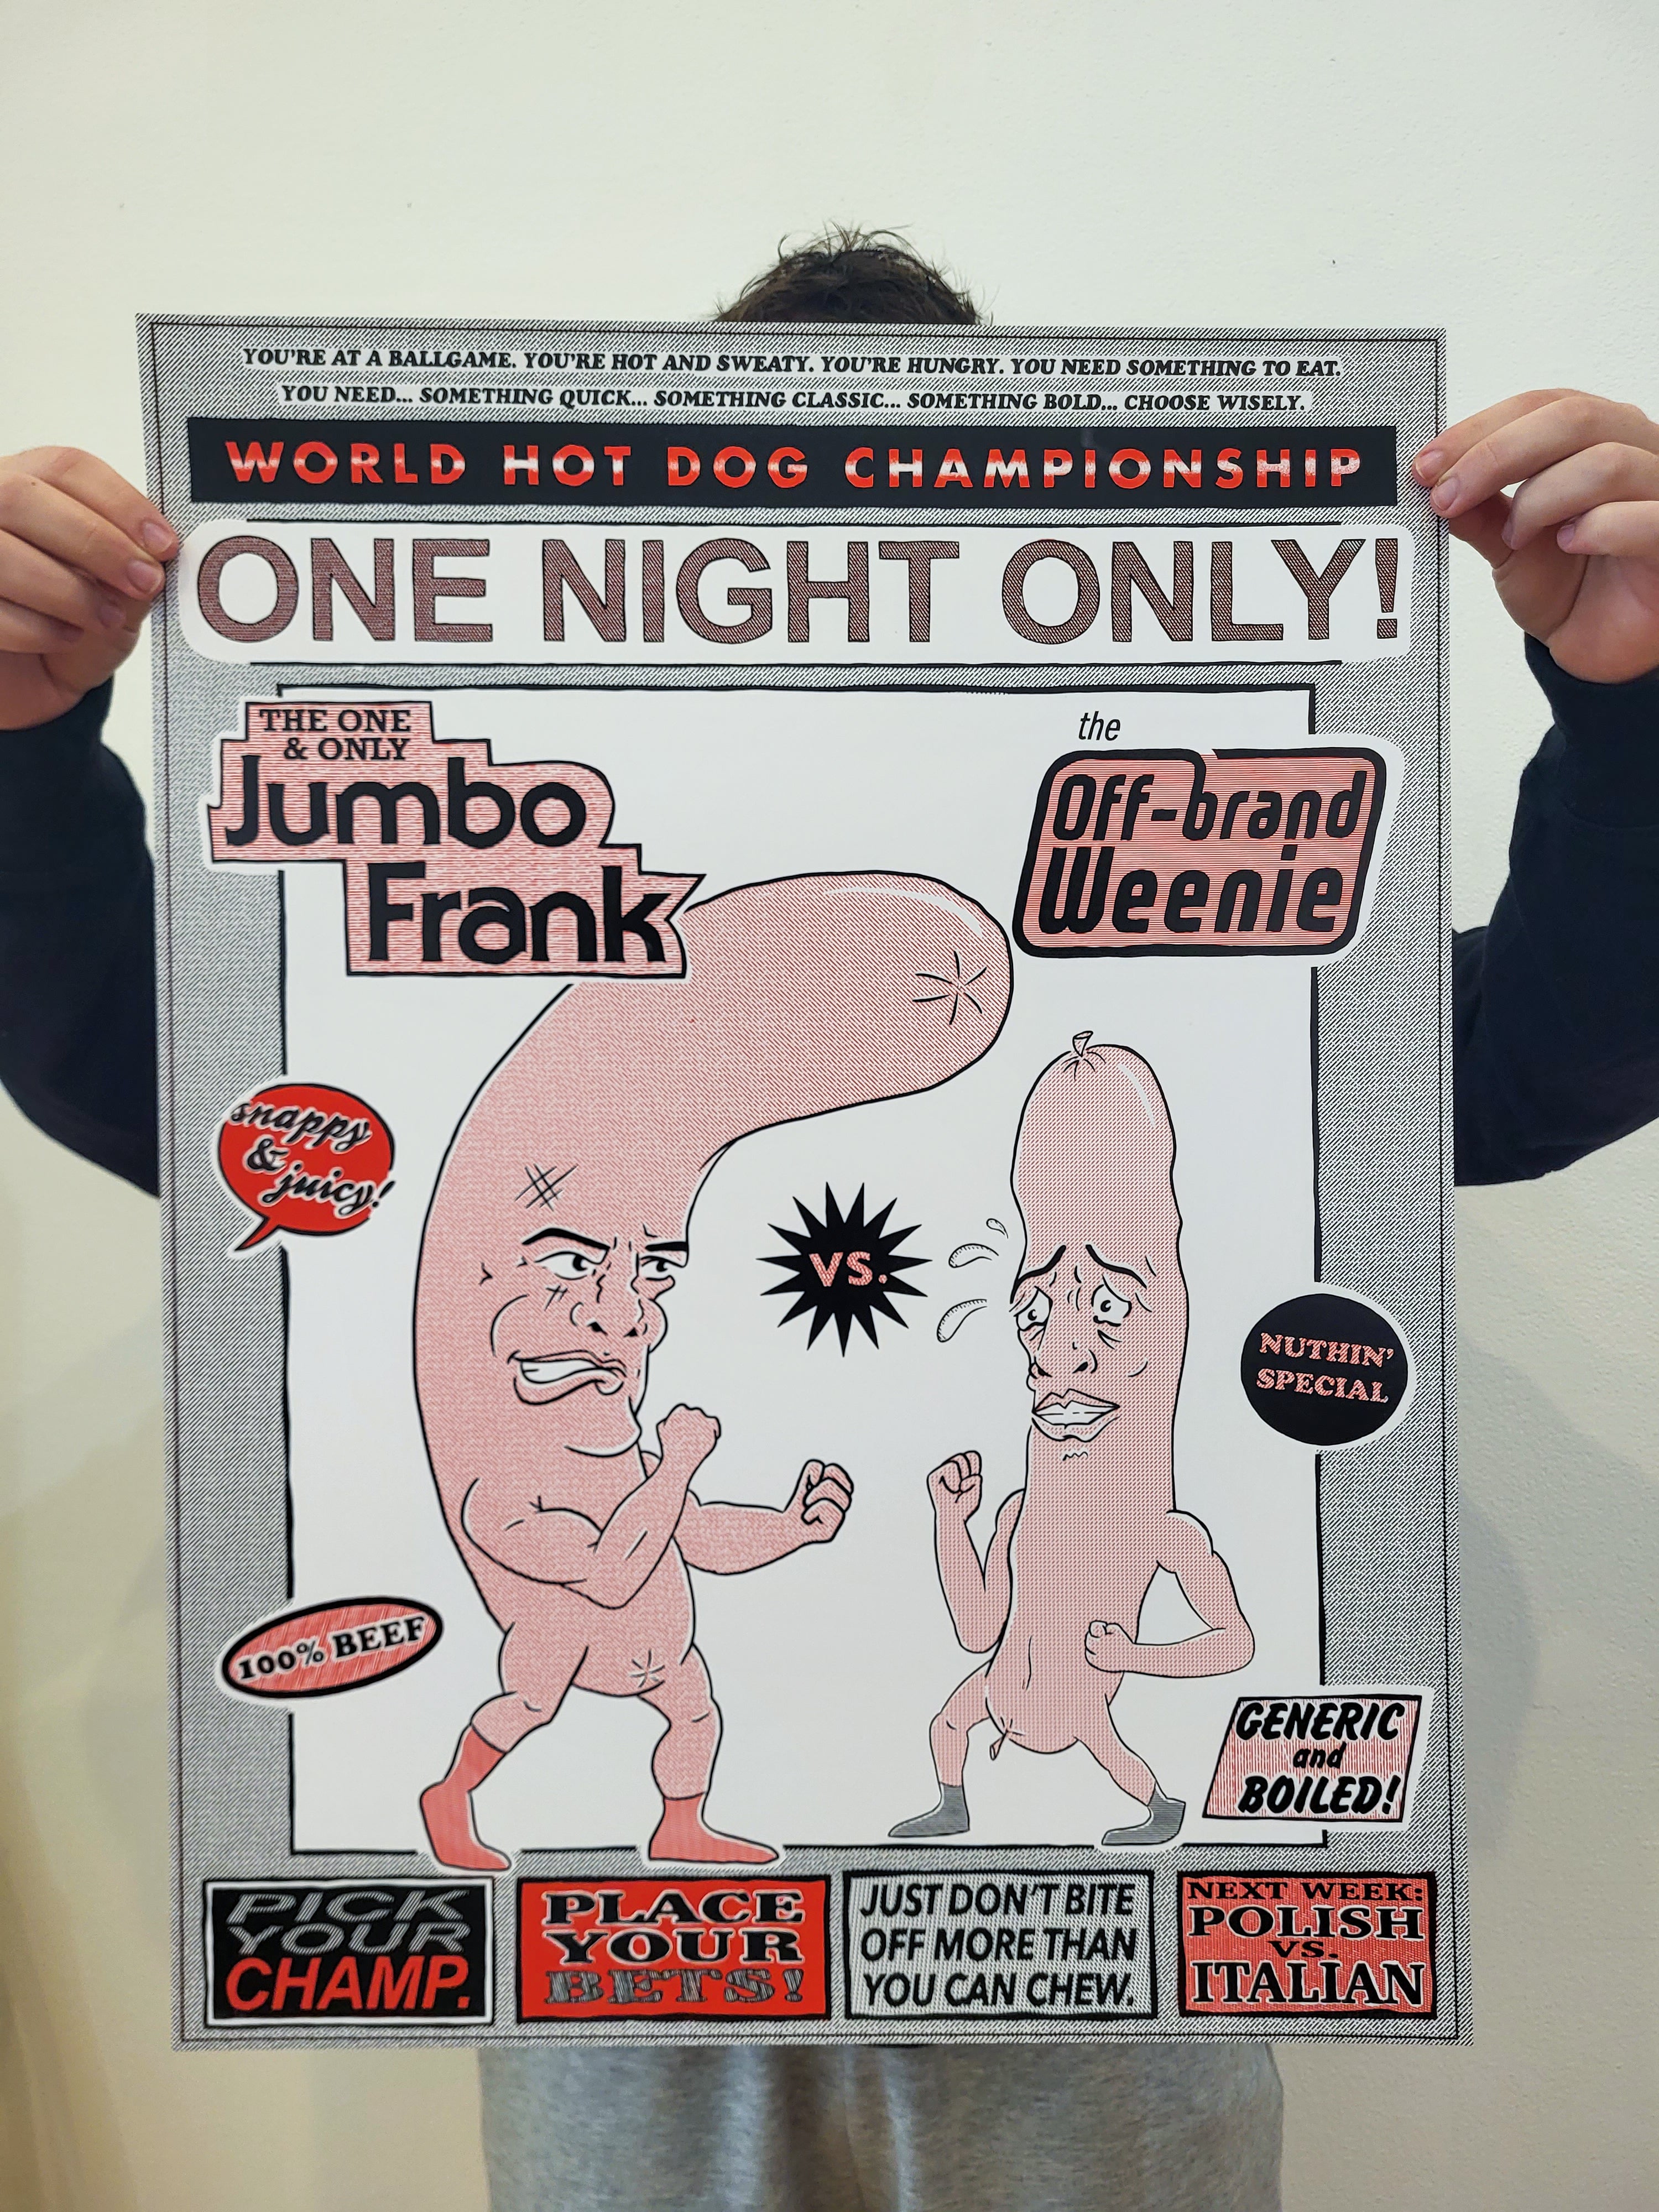 YOU'RE AT A BALLGAME. YOU'RE HOT AND SWEATY. YOU'RE HUNGRY. YOU NEED SOMETHING TO EAT.
YOU NEED... SOMETHING QUICK... SOMETHING CLASSIC... SOMETHING BOLD... CHOOSE WISELY.
WORLD HOT DOG CHAMPIONSHIP
ONE NIGHT ONLY!
THE ONE
& ONLY
Jumbo
Frank
the
Off-brand
Weenie
snappy
&
juicy!
VS.
NUTHIN'
SPECIAL
100% BEEF
GENERIC
and
BOILED!
PICK
YOUR
CHAMP.
PLACE
YOUR
BETS!
JUST DON'T BITE
OFF MORE THAN
YOU CAN CHEW.
NEXT WEEK:
POLISH
VS.
ITALIAN